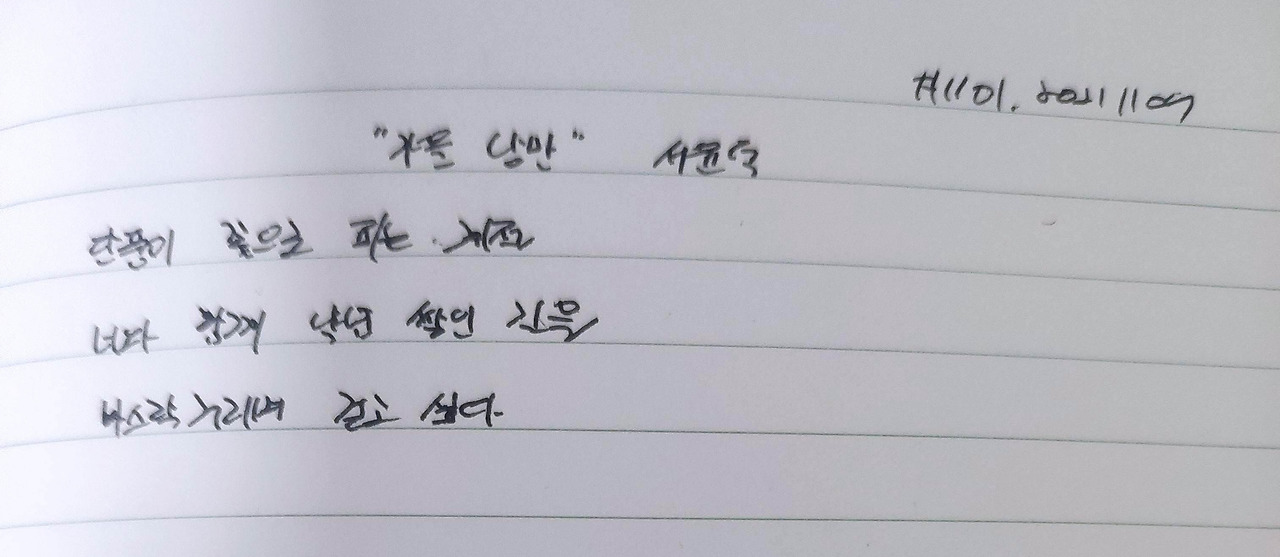 #1101. 20211109
"가을 낭만" 서윤덕
단풍이 꽃으로 피는 계절
너와 함께 낙엽 쌓인 길을
바스락거리며 걷고 싶다.